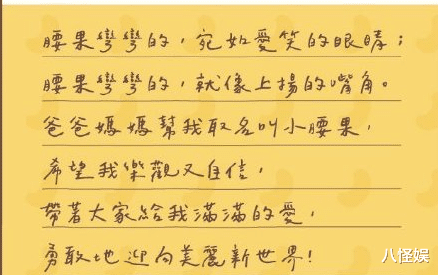 腰果彎彎的，宛如愛笑的眼睛；
腰果彎彎的，就像上揚的嘴角。
爸爸媽媽幫我取名叫小腰果，
希望我樂觀又自信，
帶著大家給我滿滿的愛，
勇敢地迎向美麗新世界！
八怪娱